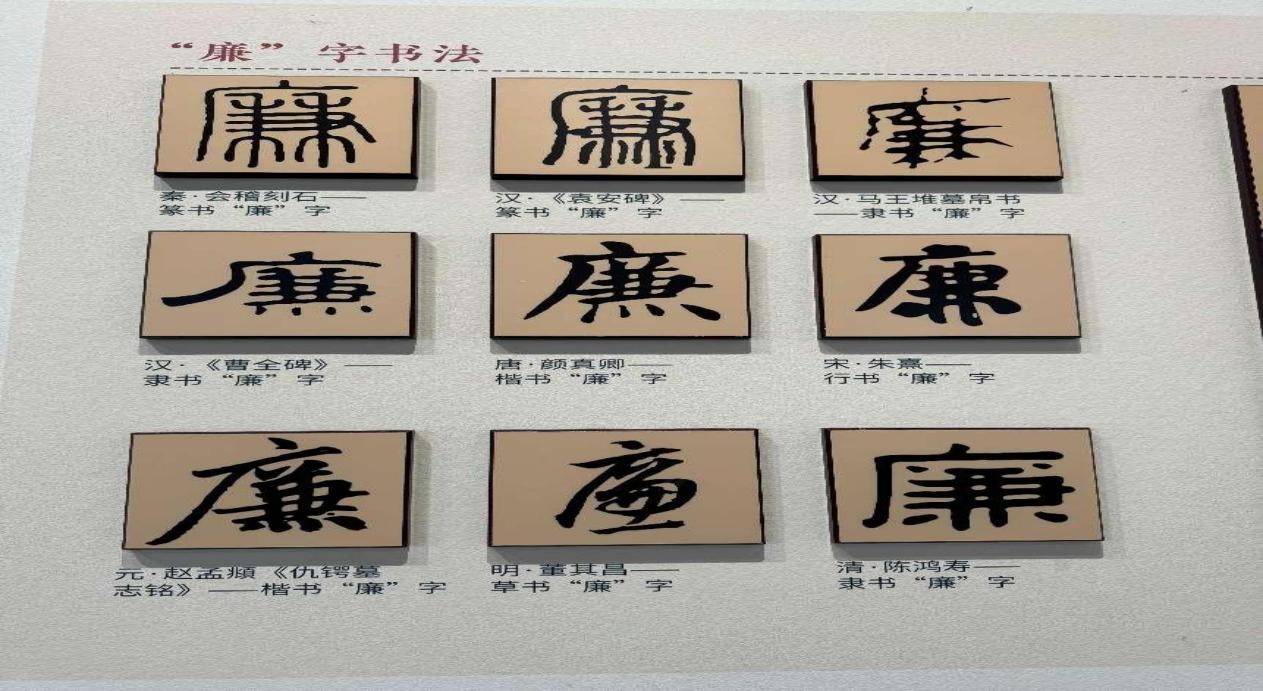 “廉” 字书法
廉
廉
廉
秦·会稽刻石——
篆书“廉”字
汉·《袁安碑》——
篆书“廉”字
汉·马王堆墓帛书
——隶书“廉”字
廉
廉
廉
汉·《曹全碑》——
隶书“廉”字
唐·颜真卿——
楷书“廉”字
宋·朱熹——
行书“廉”字
廉
廉
廉
元·赵孟頫《仇锷墓
志铭》——楷书“廉”字
明·董其昌——
草书“廉”字
清·陈鸿寿——
隶书“廉”字